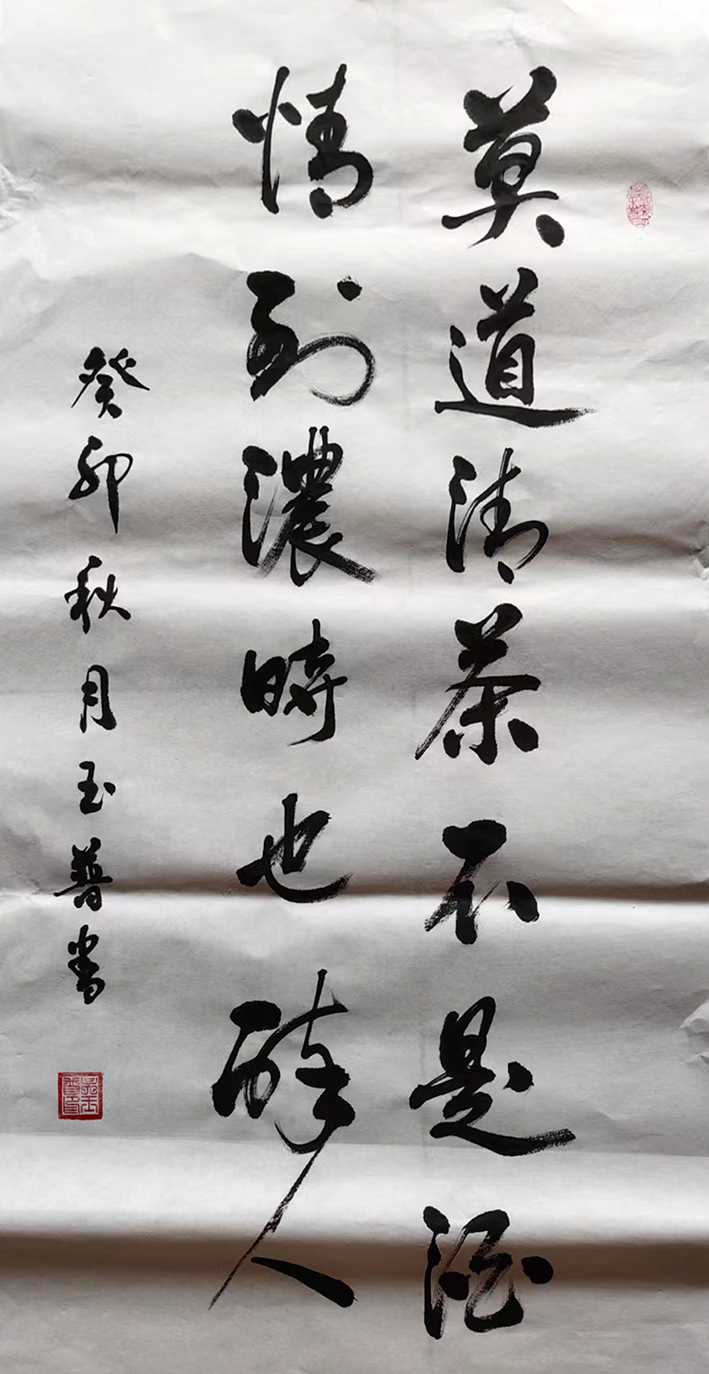 莫道清茶不是酒
情到濃時也醉人
癸卯秋月玉普書